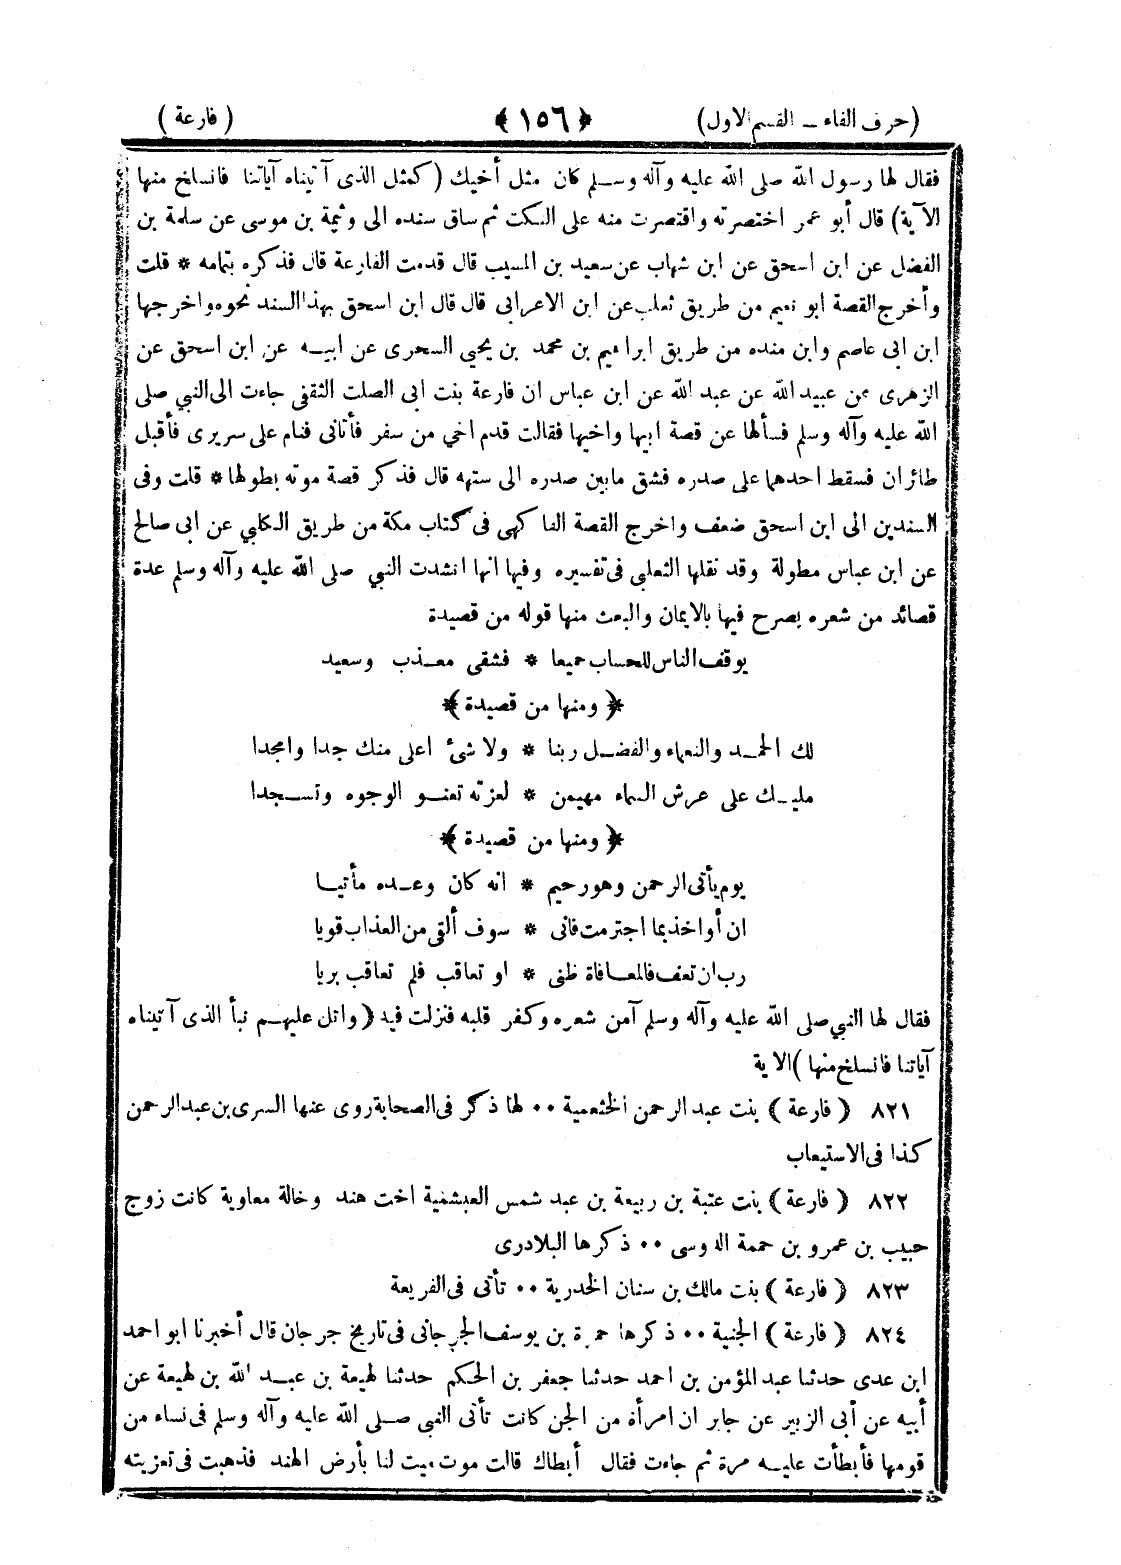 (حرف الفاء ــ القسم الاول) ﴿ ١٥٦ ﴾ ( فارعة )
فقال لها رسول الله صلى الله عليه وآله وسلم كان مثل أخيك (كمثل الذى آتيناه آياتنا فانسلخ منها
الآية) قال أبو عمر اختصرته واقتصرت منه على النكت ثم ساق سنده الى وثيمة بن موسى عن سلمة بن
الفضل عن ابن اسحق عن ابن شهاب عن سعيد بن المسيب قال قدمت الفارعة قال فذكره بتمامه * قلت
وأخرج القصة ابو نعيم من طريق ثعلب عن ابن الاعرابى قال قال ابن اسحق بهذا السند نحوه واخرجها
ابن ابى عاصم وابن منده من طريق ابراهيم بن محمد بن يحيي السحرى عن ابيه عن ابن اسحق عن
الزهرى عن عبيد الله عن عبد الله عن ابن عباس ان فارعة بنت ابى الصلت الثقفى جاءت الى النبي صلى
الله عليه وآله وسلم فسألها عن قصة ابيها واخيها فقالت قدم اخي من سفر فأتانى فنام على سريرى فأقبل
طائران فسقط احدهما على صدره فشق مابين صدره الى سته قال فذكر قصة موته بطولها * قلت وفى
السندين الى ابن اسحق ضعف واخرج القصة الفاكهى فى كتاب مكة من طريق الكلبي عن ابى صالح
عن ابن عباس مطولة وقد نقلها الثعلبى فى تفسيره وفيها انها انشدت النبي صلى الله عليه وآله وسلم عدة
قصائد من شعره يصرح فيها بالايمان والبعث منها قوله من قصيدة
يوقف الناس للحساب جميعا * فشقى معذب وسعيد
﴿ ومنها من قصيدة ﴾
لك الحمد والنعماء والفضل ربنا * ولا شئ اعلى منك جدا وامجدا
مليك على عرش السماء مهيمن * لعزته تعنو الوجوه وتسجدا
﴿ ومنها من قصيدة ﴾
يوم يأتى الرحمن وهو رحيم * انه كان وعده مأتيا
ان أواخذ بما اجترمت فانى * سوف ألقى من العذاب قويا
رب ان تعف فالمعافاة ظنى * او تعاقب فلم تعاقب بريا
فقال لها النبي صلى الله عليه وآله وسلم آمن شعره وكفر قلبه فنزلت فيه (واتل عليهم نبأ الذى آتيناه
آياتنا فانسلخ منها )الاية
٨٢١ ( فارعة ) بنت عبد الرحمن الخثعمية ٠٠ لها ذكر فى الصحابة روى عنها السرى بن عبد الرحمن
كذا فى الاستيعاب
٨٢٢ ( فارعة ) بنت عتبة بن ربيعة بن عبد شمس العبشمية اخت هند وخالة معاوية كانت زوج
حبيب بن عمرو بن حممة الدوسى ٠٠ ذكرها البلادرى
٨٢٣ ( فارعة ) بنت مالك بن سنان الخدرية ٠٠ تأتى فى الفريعة
٨٢٤ ( فارعة ) الجنية ٠٠ ذكرها حمزة بن يوسف الجرجانى فى تاريخ جرجان قال أخبرنا ابو احمد
ابن عدى حدثنا عبد المؤمن بن احمد حدثنا جعفر بن الحكم حدثنا لهيعة بن عبد الله بن لهيعة عن
أبيه عن أبى الزبير عن جابر ان امرأة من الجن كانت تأتى النبى صلى الله عليه وآله وسلم فى نساء من
قومها فأبطأت عليه مرة ثم جاءت فقال أبطاك قالت موت ميت لنا بأرض الهند فذهبت فى تعزيته